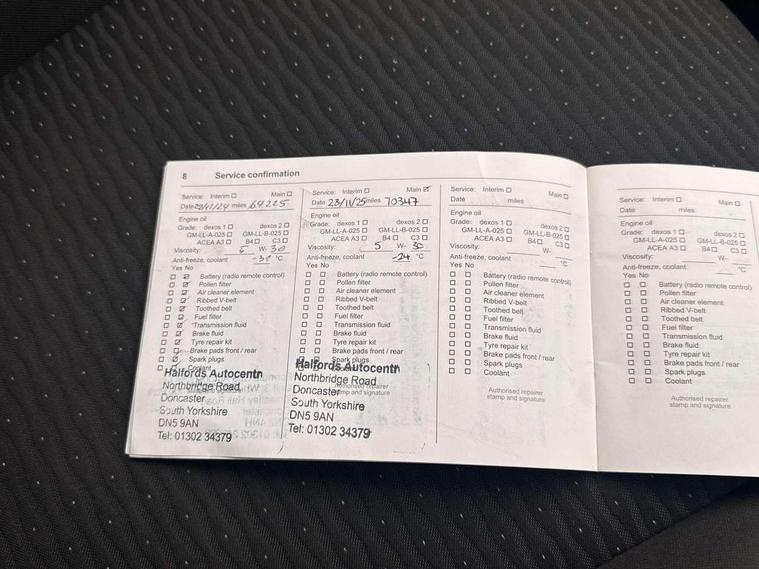 8 Service confirmation
Service: Interim ☐ Main ☐
Date miles 64225
Engine oil
Grade: dexos 1 ☐ dexos 2 ☐
GM-LL-A-025 ☐ GM-LL-B-025 ☐
ACEA A3 ☐ B4 ☐ C3 ☐
Viscosity: 5 W- 30
Anti-freeze, coolant -31 °C
Yes No
Battery (radio remote control)
Pollen filter
Air cleaner element
Ribbed V-belt
Toothed belt
Fuel filter
Transmission fluid
Brake fluid
Tyre repair kit
Brake pads front / rear
Spark plugs
Coolant
Halfords Autocentr
Northbridge Road
Doncaster
South Yorkshire
DN5 9AN
Tel: 01302 34379
Service: Interim ☐ Main ☑
Date 23/11/25 miles 70347
Engine oil
Grade: dexos 1 ☐ dexos 2 ☐
GM-LL-A-025 ☐ GM-LL-B-025 ☐
ACEA A3 ☐ B4 ☐ C3 ☐
Viscosity: 5 W- 30
Anti-freeze, coolant -24 °C
Yes No
Battery (radio remote control)
Pollen filter
Air cleaner element
Ribbed V-belt
Toothed belt
Fuel filter
Transmission fluid
Brake fluid
Tyre repair kit
Brake pads front / rear
Spark plugs
Halfords Autocentr
Northbridge Road
Authorised repairer
Doncaster
stamp and signature
South Yorkshire
DN5 9AN
Tel: 01302 34379
Service: Interim ☐ Main ☐
Date miles
Engine oil
Grade: dexos 1 ☐ dexos 2 ☐
GM-LL-A-025 ☐ GM-LL-B-025 ☐
ACEA A3 ☐ B4 ☐ C3 ☐
Viscosity: W-
Anti-freeze, coolant °C
Yes No
Battery (radio remote control)
Pollen filter
Air cleaner element
Ribbed V-belt
Toothed belt
Fuel filter
Transmission fluid
Brake fluid
Tyre repair kit
Brake pads front / rear
Spark plugs
Coolant
Authorised repairer
stamp and signature
Service: Interim ☐ Main ☐
Date miles
Engine oil
Grade: dexos 1 ☐ dexos 2 ☐
GM-LL-A-025 ☐ GM-LL-B-025 ☐
ACEA A3 ☐ B4 ☐ C3 ☐
Viscosity: W-
Anti-freeze, coolant °C
Yes No
Battery (radio remote control)
Pollen filter
Air cleaner element
Ribbed V-belt
Toothed belt
Fuel filter
Transmission fluid
Brake fluid
Tyre repair kit
Brake pads front / rear
Spark plugs
Coolant
Authorised repairer
stamp and signature